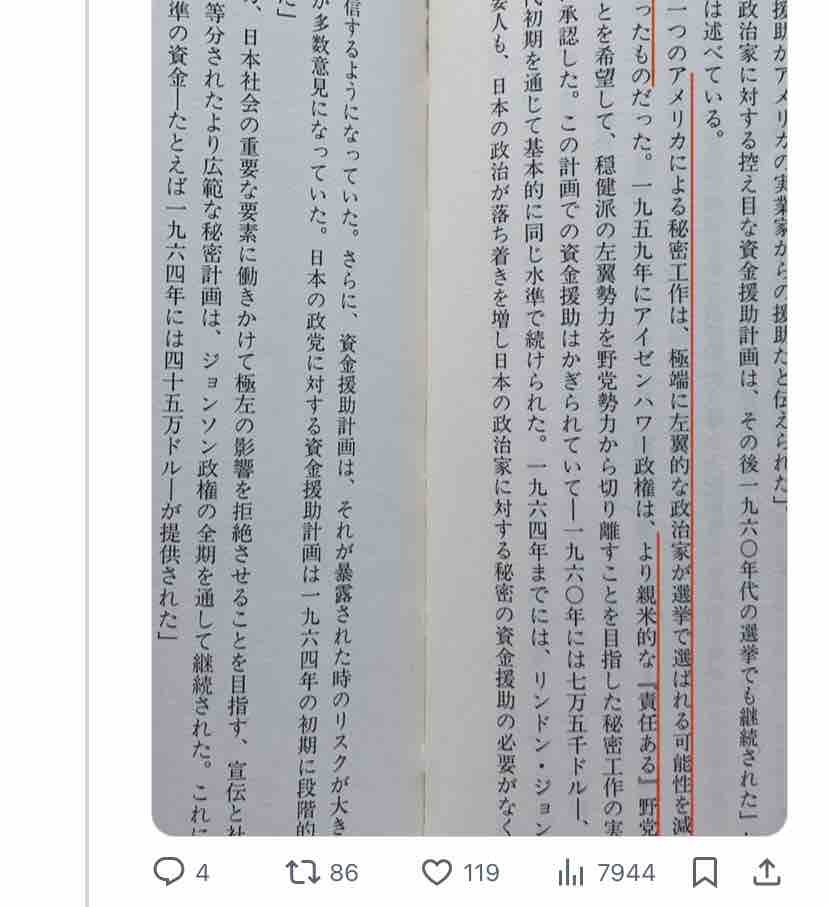 援助がアメリカの実業家からの援助だと伝えられた」
政治家に対する控え目な資金援助計画は、その後一九六〇年代の選挙でも継続された」
は述べている。
一つのアメリカによる秘密工作は、極端に左翼的な政治家が選挙で選ばれる可能性を減
ったものだった。一九五九年にアイゼンハワー政権は、より親米的な『責任ある』野党
とを希望して、穏健派の左翼勢力を野党勢力から切り離すことを目指した秘密工作の実
承認した。この計画での資金援助はかぎられていて―一九六〇年には七万五千ドル―、
代初期を通じて基本的に同じ水準で続けられた。一九六四年までには、リンドン・ジョン
要人も、日本の政治が落ち着きを増し日本の政治家に対する秘密の資金援助の必要がなく
信するようになっていた。さらに、資金援助計画は、それが暴露された時のリスクが大き
が多数意見になっていた。日本の政党に対する資金援助計画は一九六四年の初期に段階的
た」
、日本社会の重要な要素に働きかけて極左の影響を拒絶させることを目指す、宣伝と社
等分されたより広範な秘密計画は、ジョンソン政権の全期を通して継続された。これに
準の資金―たとえば一九六四年には四十五万ドル―が提供された」
4
86
119
7944